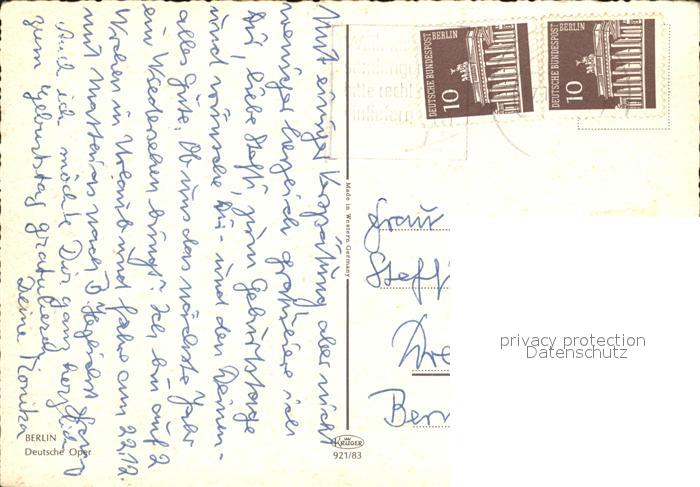 Mit einiger Verspätung aber nicht
weniger herzlich gratuliere ich
Dir, liebe Steffi, zum Geburtstage
und wünsche Dir und den Deinen
alles Gute. Ob uns das nächste Jahr
ein Wiedersehen bringt? Ich bin auf 2
Wochen in Urlaub und fahre am 22.12.
mit nach
Auch ich möchte Dir ganz herzlich
zum Geburtstag gratulieren
Deine Monika
DEUTSCHE BUNDESPOST
BERLIN
10
DEUTSCHE BUNDESPOST
BERLIN
10
Made in Western Germany
Frau
Steff
Dre
Ber
privacy protection
Datenschutz
BERLIN
Deutsche Oper
KRÜGER
921/83